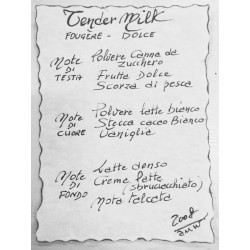 Tender Milk
FOUGÈRE - DOLCE
NOTE DI TESTA
Polvere canna da zucchero
Frutta Dolce
Scorza di pesca
NOTE DI CUORE
Polvere latte bianco
Stecca cacao Bianco
Vaniglia
NOTE DI FONDO
Latte denso
Creme latte (sbruciacchiato)
Nota talcata
2008